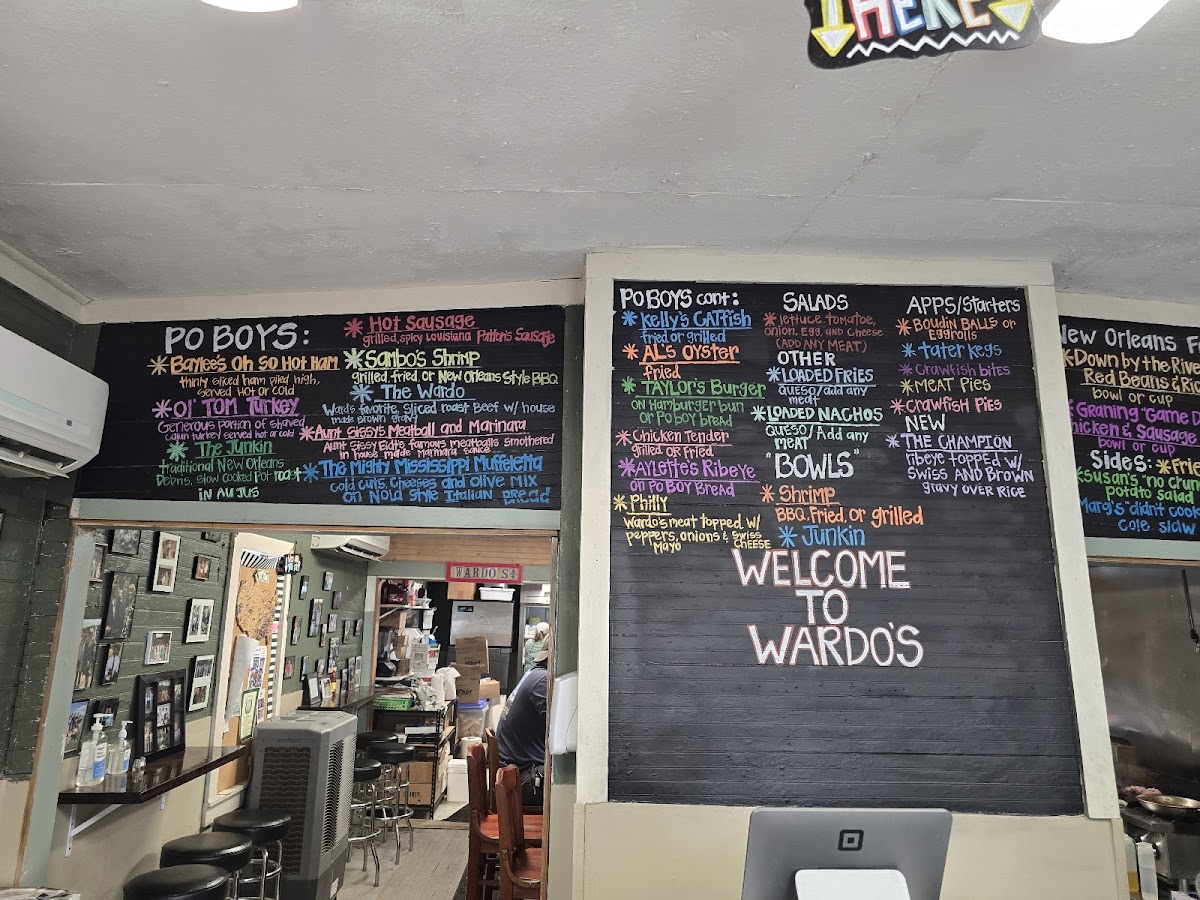 HERE
PO BOYS:
* Baylee's Oh So Hot Ham
thinly sliced ham piled high,
served Hot or Cold
* Ol' TOM Turkey
Generous portion of shaved
Cajun turkey served hot or cold
* The Junkin
Traditional New Orleans
Debris, slow cooked Pot roast
in AU JUS
* Hot Sausage
grilled, spicy Louisiana Patton's Sausage
* Sambo's Shrimp
grilled, fried or New Orleans Style BBQ
* The Wardo
Wardo's favorite, sliced roast Beef w/ house
made brown gravy
* Aunt Sissy's Meatball and Marinara
Aunt Sissy famous meatballs smothered
in house made Marinara sauce
* The Mighty Mississippi Muffeletta
cold cuts, Cheeses and Olive Mix
on Nola style Italian Bread
WARDO'S
PO BOYS cont:
* Kelly's CATfish
fried or grilled
* AL's Oyster
fried
* TAYLOR'S Burger
on Hamburger bun
or Po Boy Bread
* Chicken Tender
grilled or Fried
* Aylette's Ribeye
on Po Boy Bread
* Philly
Wardo's meat topped w/
peppers, onions & Swiss CHEESE
Mayo
SALADS
* lettuce, tomatoe,
onion, Egg, and Cheese
(ADD ANY MEAT)
OTHER
* LOADED FRIES
queso/add any
meat
* LOADED NACHOS
QUESO/Add any
meat
"BOWLS"
* Shrimp
BBQ, Fried, or grilled
* Junkin
APPS/Starters
* Boudin BALLS or
Eggrolls
* tater kegs
* Crawfish bites
* MEAT Pies
* Crawfish Pies
NEW
* THE CHAMPION
ribeye topped w/
Swiss AND Brown
gravy over RICE
WELCOME
TO
WARDO'S
New Orleans
* Down by the River
Red Beans & R
bowl or cup
* Graning "Game D
Chicken & Sausage
bowl or cup
Sides: * Frie
* Susan's "no crun
potato salad
Marg's "didn't cook
cole slaw